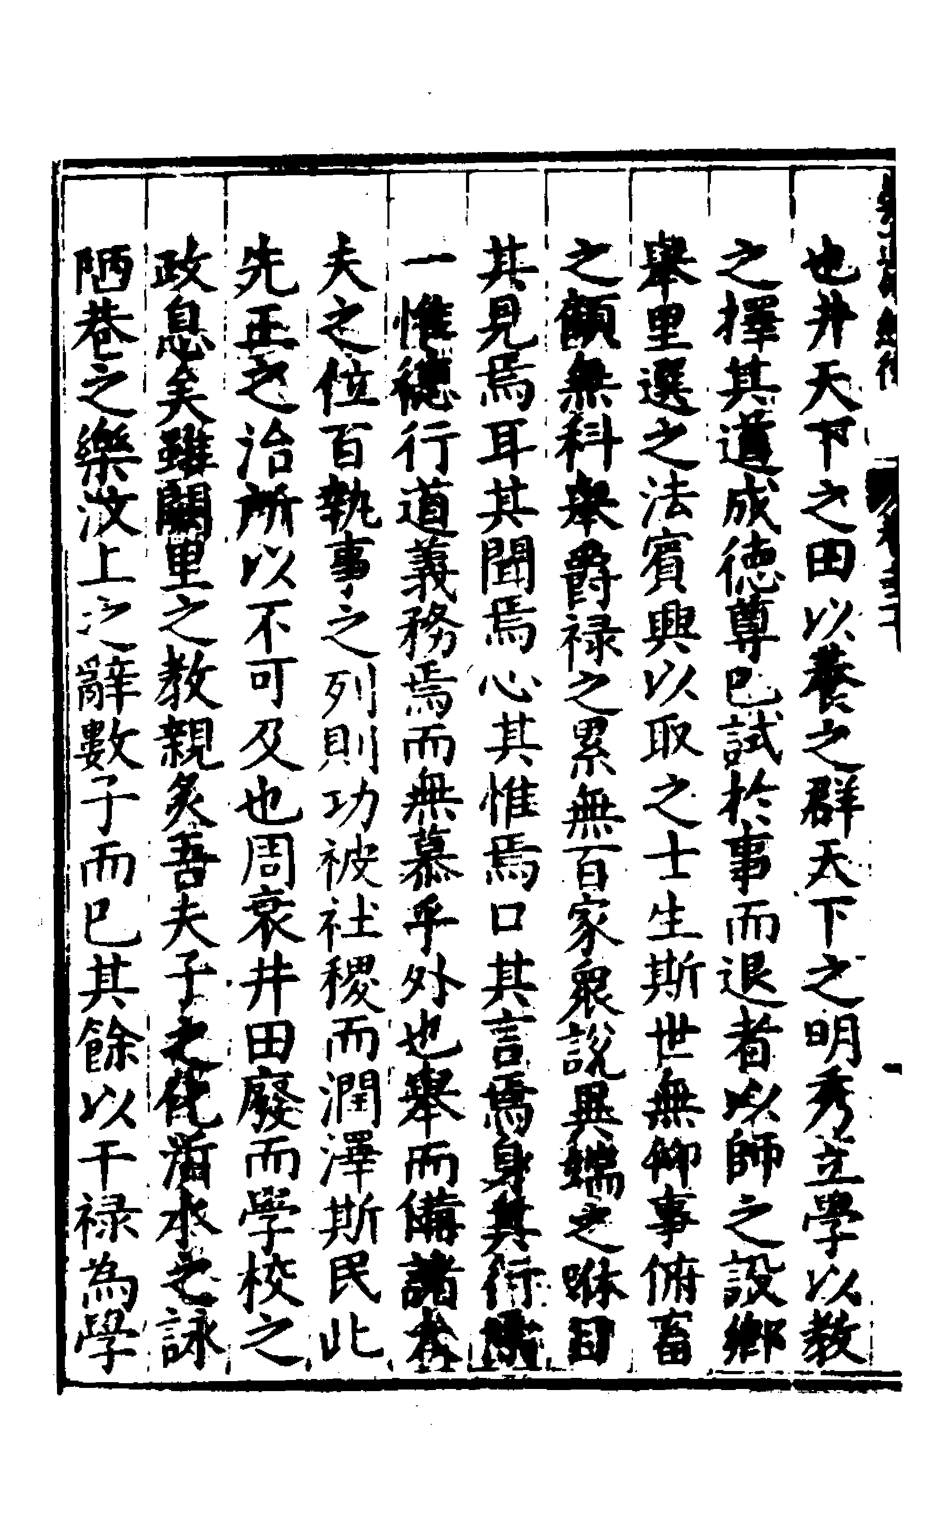 也井天下之田以養之群天下之明秀立學以教
之擇其道成徳尊已試於事而退者以師之設鄉
舉里選之法賓興以取之士生斯世無仰事俯畜
之顧無科舉爵禄之累無百家衆說異端之咻目
其見焉耳其聞焉心其惟焉口其言焉身其行焉
一惟徳行道義務焉而無慕乎外也舉而備諸大
夫之位百執事之列則功被社稷而潤澤斯民此
先正之治所以不可及也周衰井田廢而學校之
政息矣雖闕里之教親炙吾夫子之化沂水之詠
陋巷之樂汶上之辭數子而已其餘以干禄為學